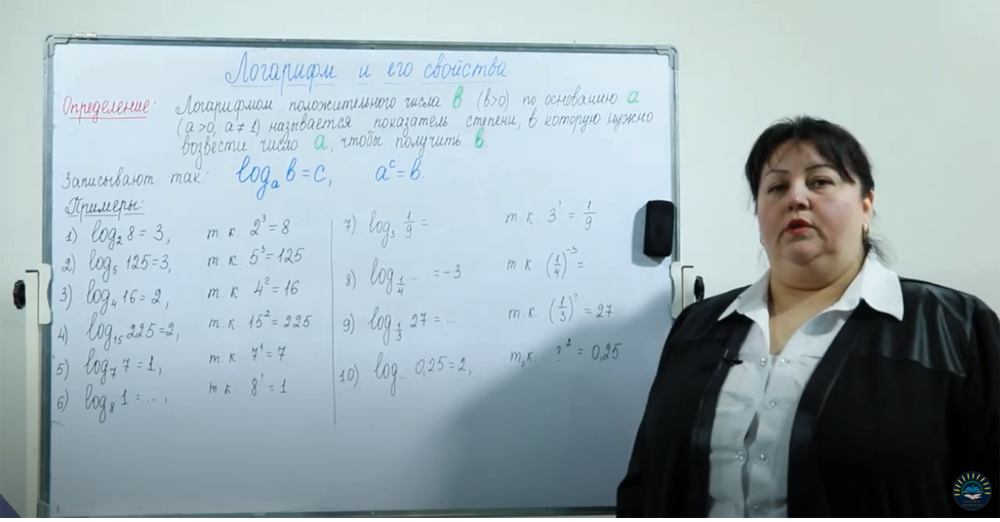 Логарифм и его свойства
Определение: Логарифмом положительного числа в (в>0) по основанию а
(а>0, а≠1) называется показатель степени, в которую нужно
возвести число а, чтобы получить в.
Записывают так: log_a в = c, a^c = в.
Примеры:
1) log_2 8 = 3, т.к. 2^3 = 8
2) log_5 125 = 3, т.к. 5^3 = 125
3) log_4 16 = 2, т.к. 4^2 = 16
4) log_15 225 = 2, т.к. 15^2 = 225
5) log_7 7 = 1, т.к. 7^1 = 7
6) log_8 1 = ..., т.к. 8^? = 1
7) log_3 1/9 = т.к. 3^? = 1/9
8) log_1/4 ... = -3 т.к. (1/4)^-3 =
9) log_1/3 27 = ... т.к. (1/3)^? = 27
10) log_... 0,25 = 2, т.к. ?^2 = 0,25